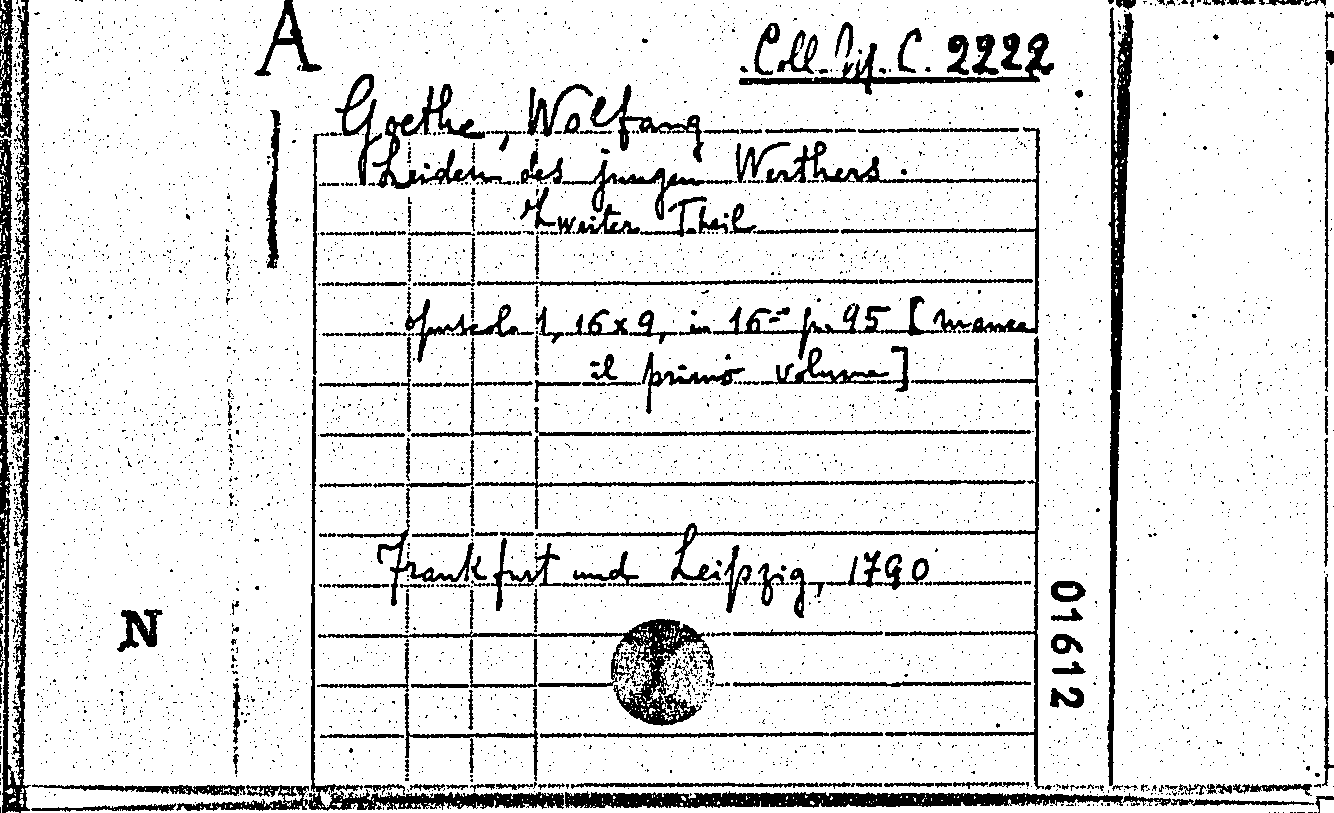 A
Coll. Dif. C. 2222
Goethe, Wolfang
Leiden des jungen Werthers.
Zweiter Theil
opuscolo 1, 16x9, in 16° p. 95 [manca
il primo volume]
Frankfurt und Leipzig, 1790
N
01612